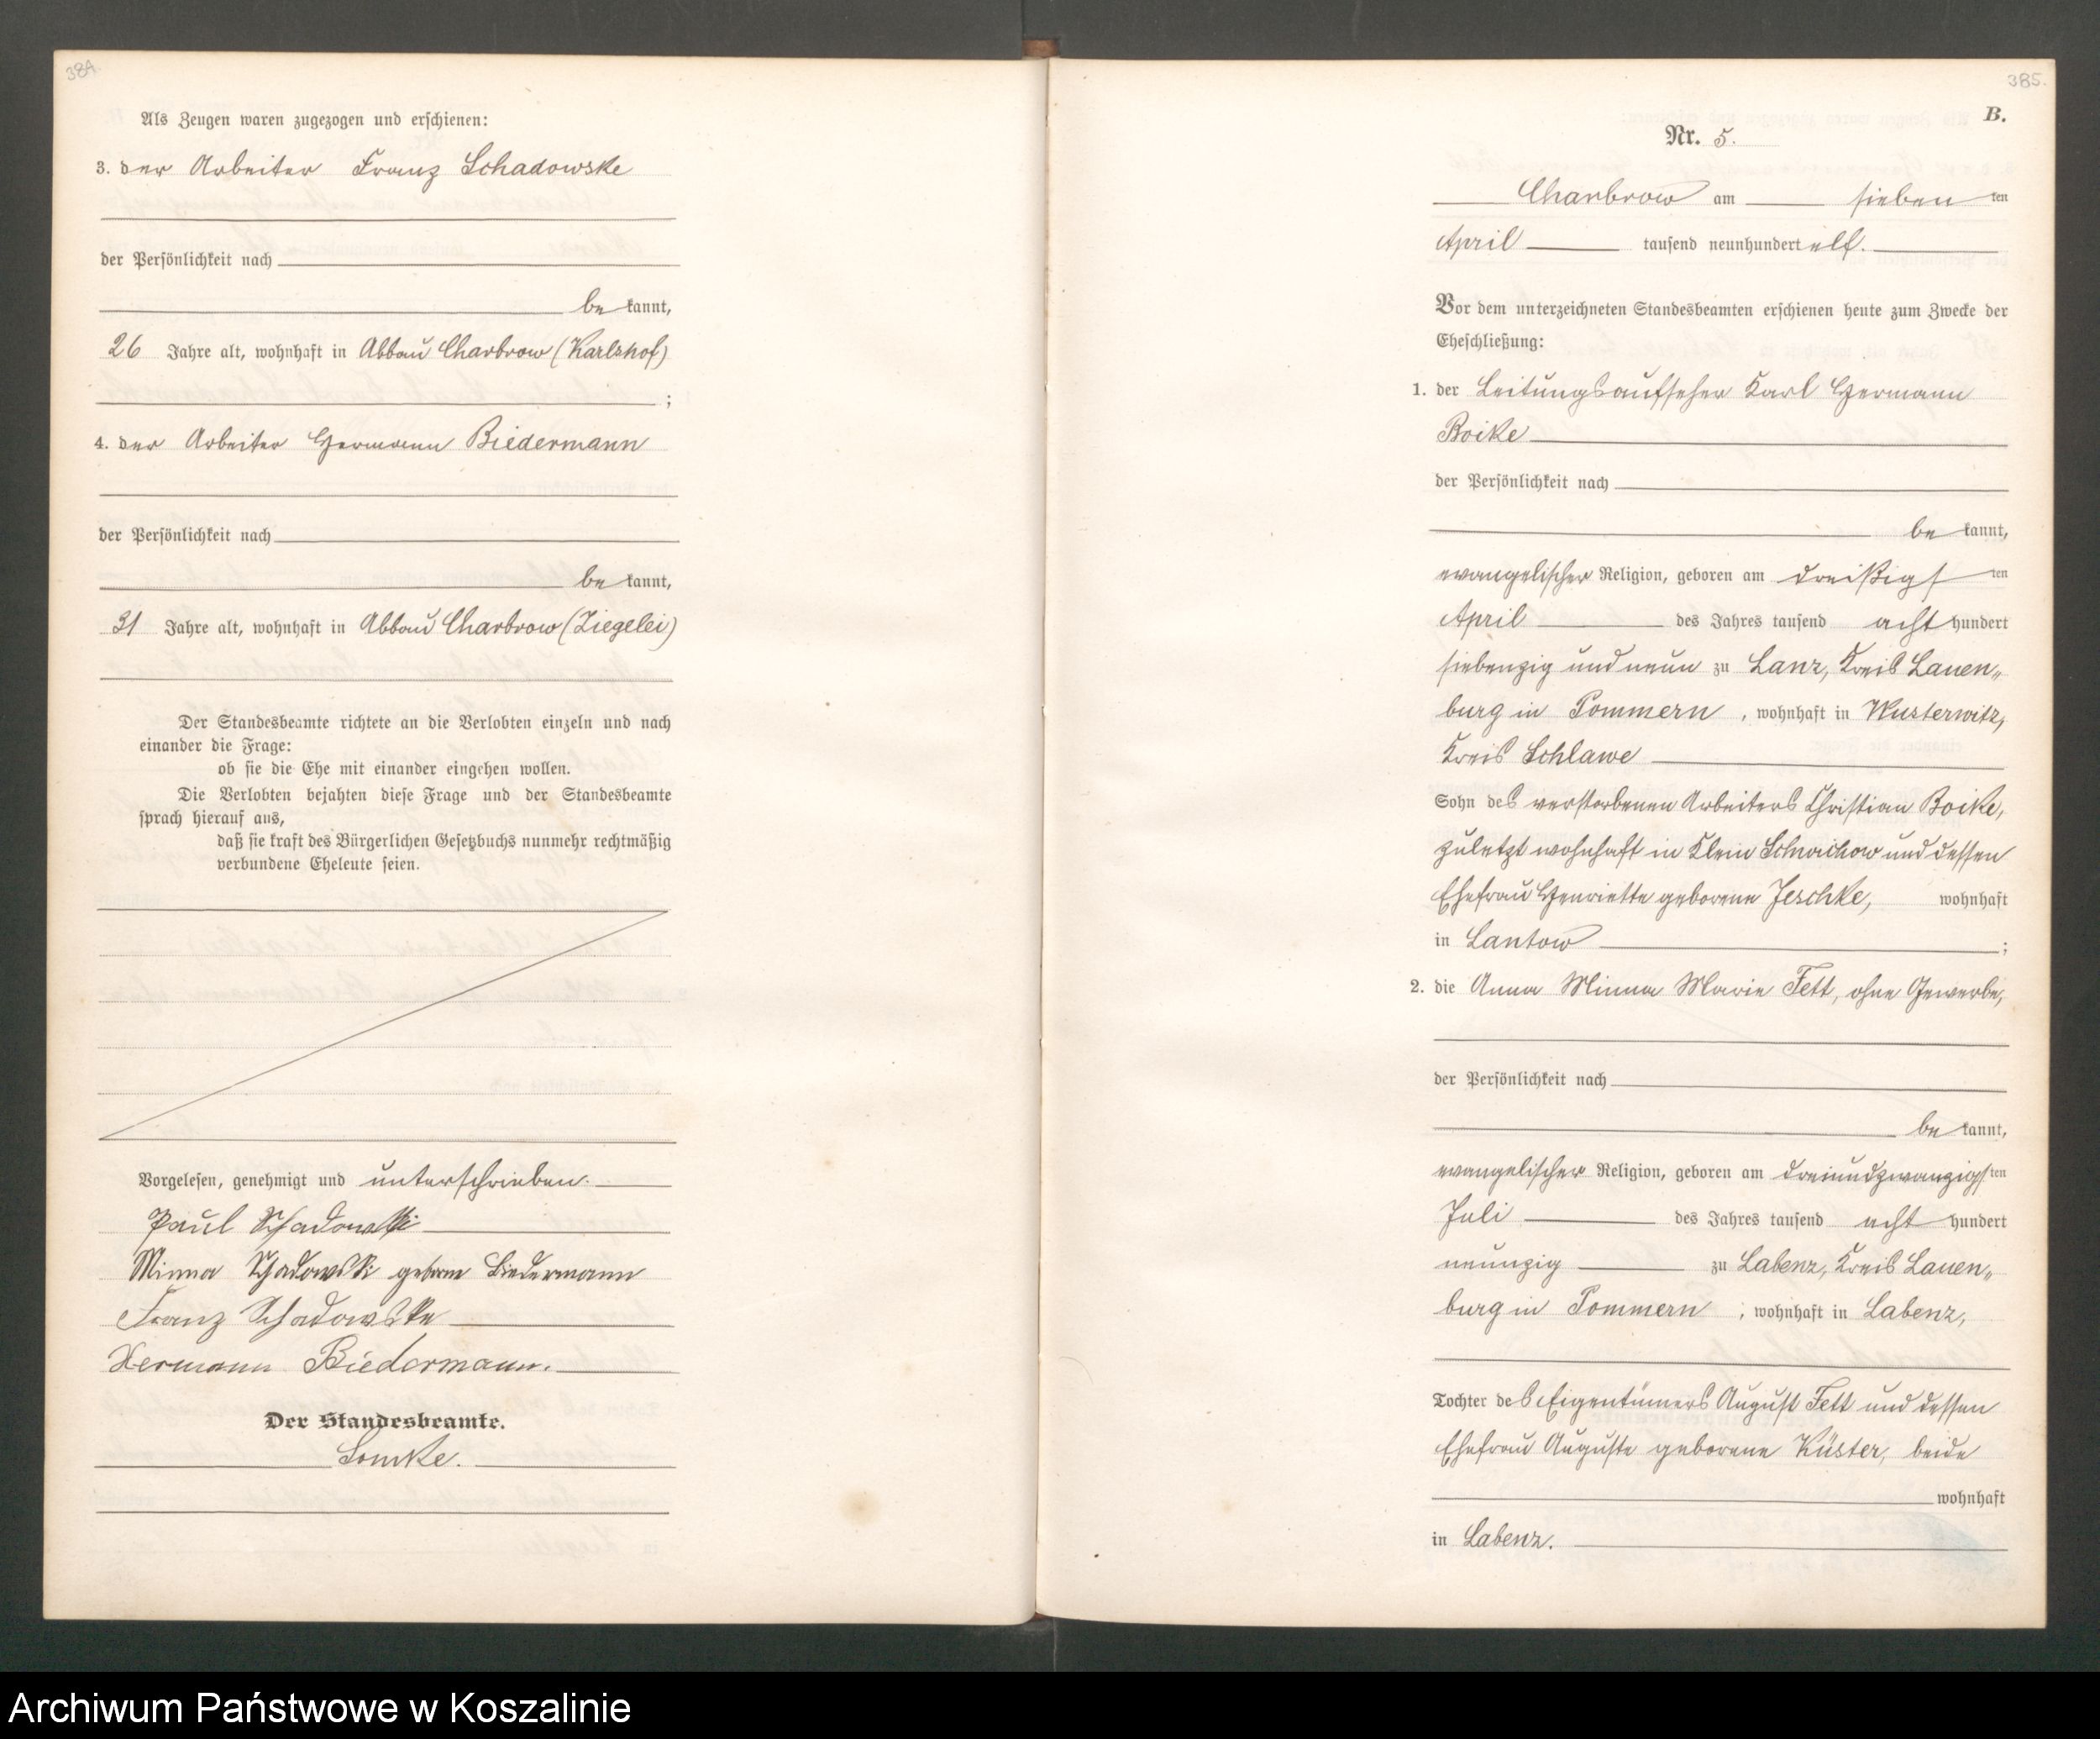 384.
Als Zeugen waren zugezogen und erschienen:
3. der Arbeiter Franz Schadowske
der Persönlichkeit nach
be kannt,
26 Jahre alt, wohnhaft in Abbau Charbrow (Karlshof)
;
4. der Arbeiter Hermann Biedermann
der Persönlichkeit nach
be kannt,
31 Jahre alt, wohnhaft in Abbau Charbrow (Ziegelei)
Der Standesbeamte richtete an die Verlobten einzeln und nach
einander die Frage:
ob sie die Ehe mit einander eingehen wollen.
Die Verlobten bejahten diese Frage und der Standesbeamte
sprach hierauf aus,
daß sie kraft des Bürgerlichen Gesetzbuchs nunmehr rechtmäßig
verbundene Eheleute seien.
Vorgelesen, genehmigt und unterschrieben.
Paul Schadowski
Minna Schadowski geborne Biedermann
Franz Schadowske
Hermann Biedermann.
Der Standesbeamte.
385.
B.
Nr. 5.
Charbrow am sieben ten
April tausend neunhundert elf.
Vor dem unterzeichneten Standesbeamten erschienen heute zum Zwecke der
Eheschließung:
1. der Leitungsaufseher Karl Hermann
Boike
der Persönlichkeit nach
be kannt,
evangelischer Religion, geboren am dreißigs ten
April des Jahres tausend acht hundert
siebenzig und neun zu Lanz, Kreis Lauen„
burg in Pommern, wohnhaft in Wusterwitz,
Kreis Schlawe
Sohn des verstorbenen Arbeiters Christian Boike,
zuletzt wohnhaft in Klein Schwichow und dessen
Ehefrau Henriette geborene Jeschke, wohnhaft
in Lantow ;
2. die Anna Minna Marie Fett, ohne Gewerbe,
der Persönlichkeit nach
be kannt,
evangelischer Religion, geboren am dreiundzwanzigs ten
Juli des Jahres tausend acht hundert
neunzig zu Labenz, Kreis Lauen„
burg in Pommern, wohnhaft in Labenz,
Tochter des Eigentümers August Fett und dessen
Ehefrau Auguste geborene Küster, beide
wohnhaft
in Labenz.
Archiwum Państwowe w Koszalinie